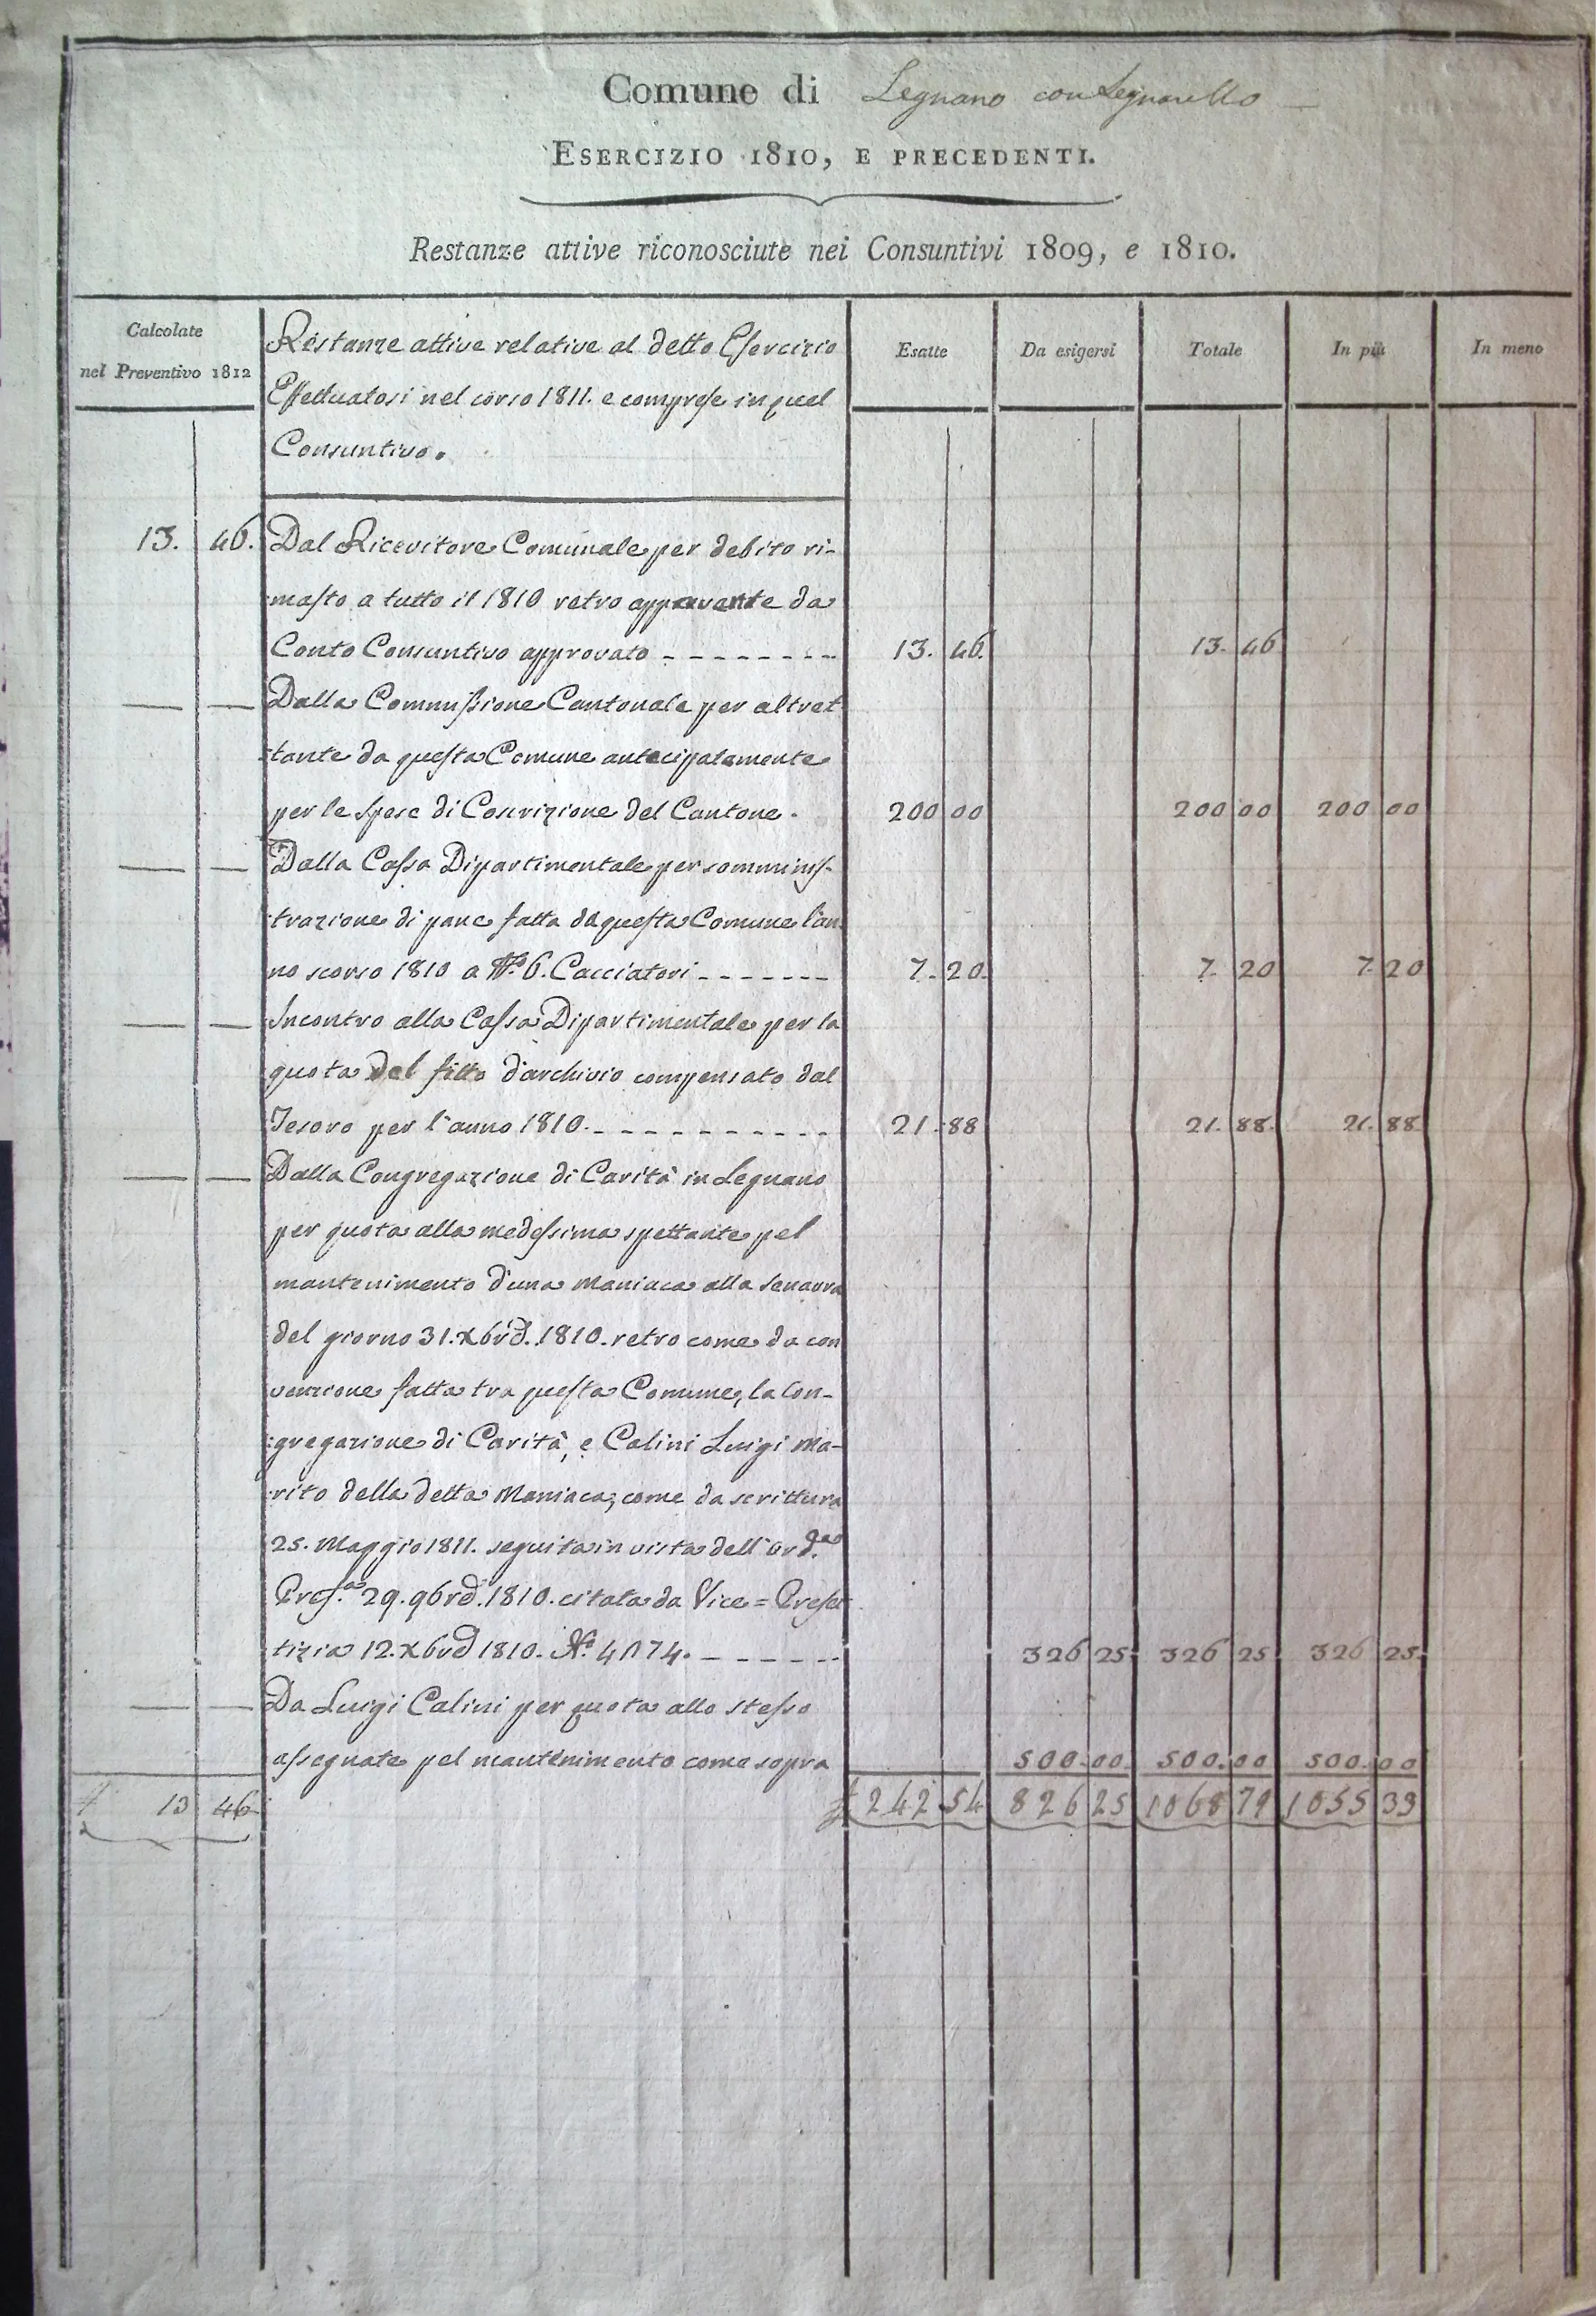 Comune di Legnano con Legnarello
ESERCIZIO 1810, E PRECEDENTI.
Restanze attive riconosciute nei Consuntivi 1809, e 1810.
Calcolate
nel Preventivo 1812
Restanze attive relative al detto Esercizio
Effettuatosi nel corso 1811. e comprese in quel
Consuntivo.
Esatte
Da esigersi
Totale
In più
In meno
13. 46. Dal Ricevitore Comunale per debito ri-
masto a tutto il 1810 retro apparente da
Conto Consuntivo approvato 13. 46. 13. 46
Dalla Commissione Cantonale per altret
tante da questa Comune antecipatamente
per le spese di Coscrizione del Cantone. 200 00 200 00 200 00
Dalla Cassa Dipartimentale per somminis-
trazione di pane fatta da questa Comune l'an
no scorso 1810 a N.° 6. Cacciatori 7. 20. 7. 20 7. 20
Incontro alla Cassa Dipartimentale per la
quota del fitto d'archivio compensato dal
Tesoro per l'anno 1810. 21. 88 21. 88. 21. 88
Dalla Congregazione di Carità in Legnano
per quota alla medessima spettante pel
mantenimento d'una Maniaca alla Senavra
del giorno 31. Xbrẽ. 1810. retro come da con
venzione fatta tra questa Comune, la Con-
gregazione di Carità, e Calini Luigi Ma-
rito della detta Maniaca, come da scrittura
25. Maggio 1811. seguita in vista dell'ord.a
Pref.a 29. 9brẽ. 1810. citata da Vice=Prefet
tizia 12. Xbrẽ 1810. N.° 4174. 326 25. 326 25. 326 25.
Da Luigi Calini per quota allo stesso
assegnate pel mantenimento come sopra 500.00. 500.00 500.00
£ 13 46 £ 242 54 826 25 1068 79 1055 33